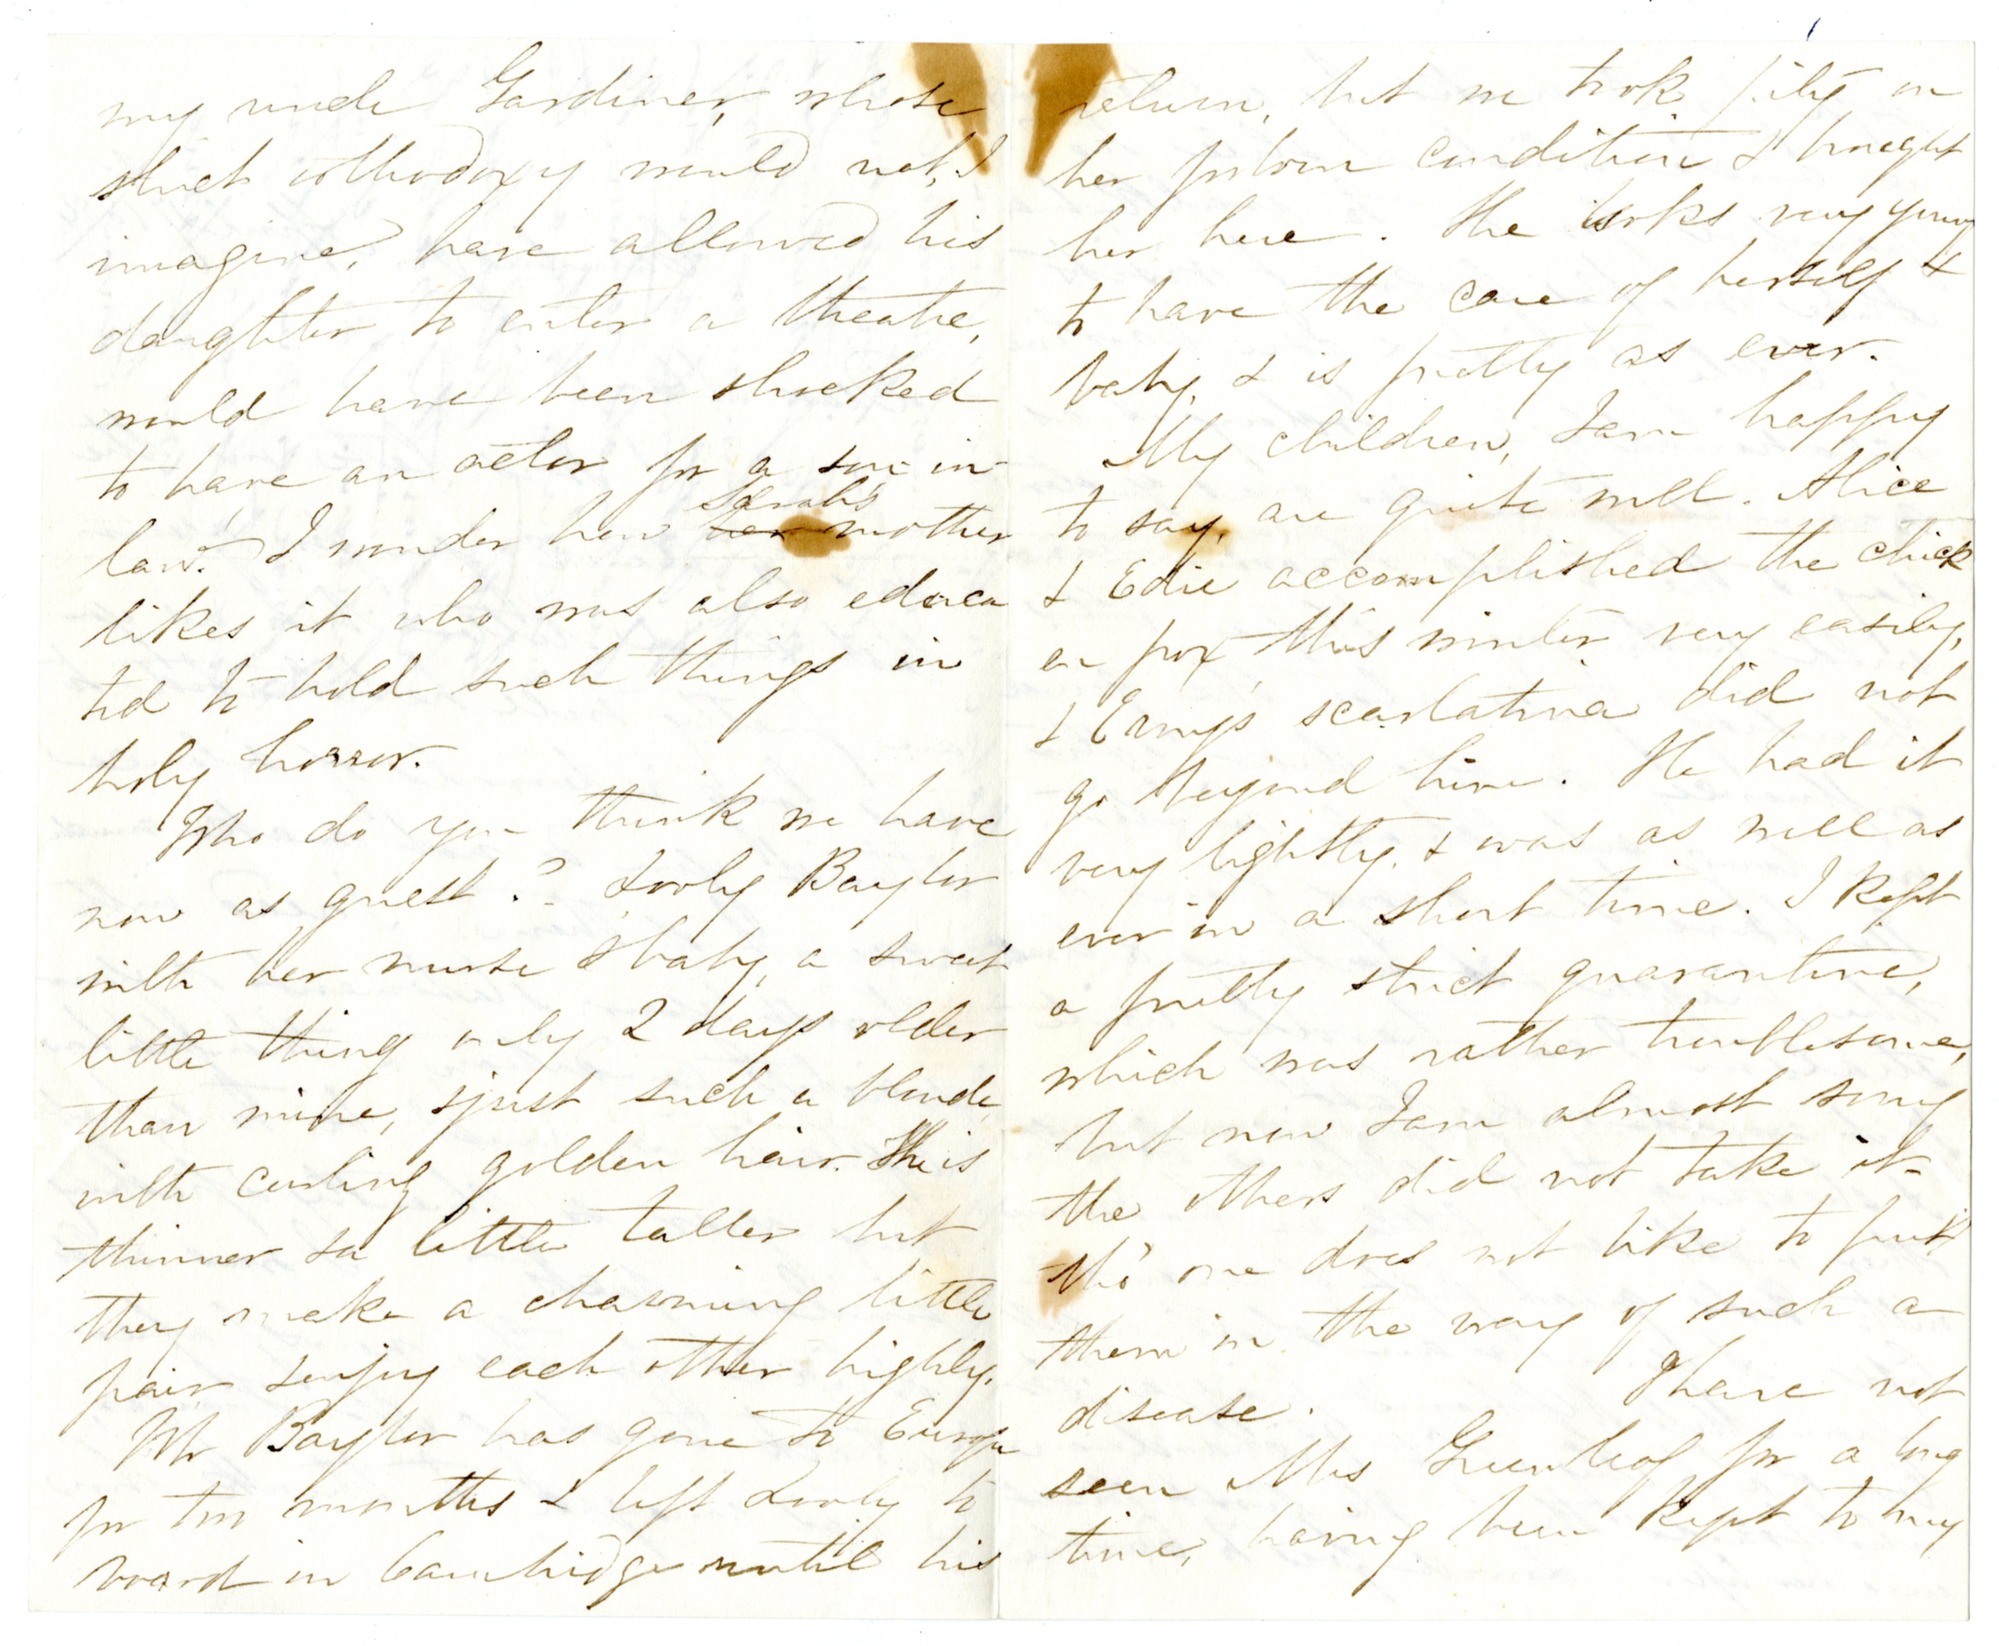 my uncle Gardiner, whose
strict orthodoxy would not, I
imagine, have allowed his
daughter to enter a theatre,
would have been shocked
to have an actor for a son-in-
law! I wonder how Sarah's mother
likes it who was also educa
ted to hold such things in
holy horror.
Who do you think we have
now as guest? Looly Baylor
with her nurse & baby, a sweet
little thing only 2 days older
than mine, & just such a blonde
with curling golden hair. She is
thinner & a little taller but
they make a charming little
pair & enjoy each other highly.
Mr Baylor has gone to Europe
for two months & left Looly to
board in Cambridge until his
return, but we took pity on
her forlorn condition & brought
her here. She looks very young
to have the care of herself &
baby, & is pretty as ever.
My children, I am happy
to say, are quite well. Alice
& Edie accomplished the chick
en pox this winter very easily,
& Erny's scarlatina did not
go beyond him. He had it
very lightly, & was as well as
ever in a short time. I kept
a pretty strict quarantine,
which was rather troublesome,
but now I am almost sorry
the others did not take it
tho' one does not like to put
them in the way of such a
disease. I have not
seen Mrs Greenleaf for a long
time, having been kept to my